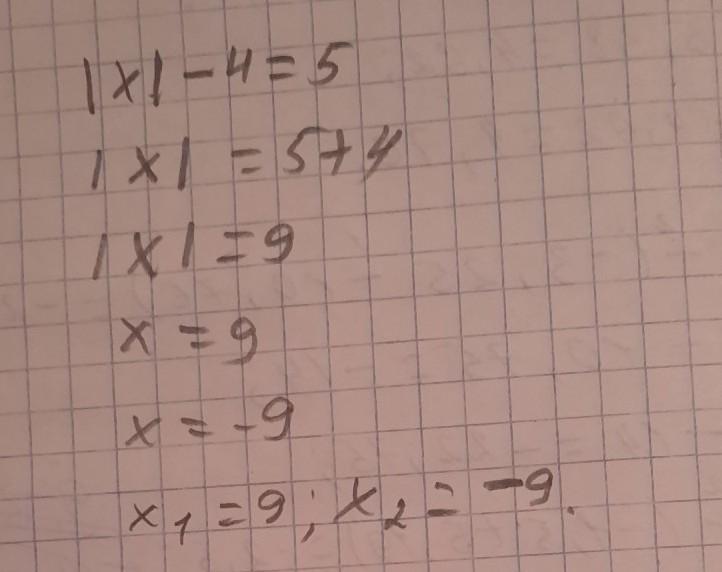 |x| - 4 = 5
|x| = 5+4
|x| = 9
x = 9
x = -9
x₁ = 9; x₂ = -9.